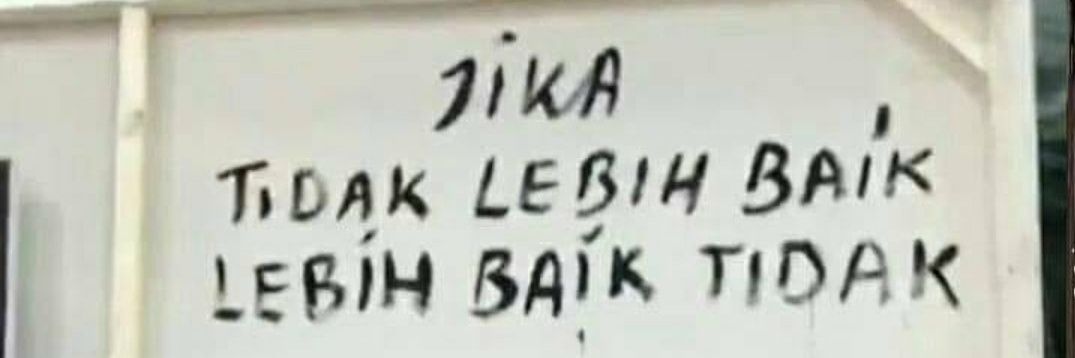 JiKA
TiDAK LEBIH BAiK
LEBiH BAiK TIDAK